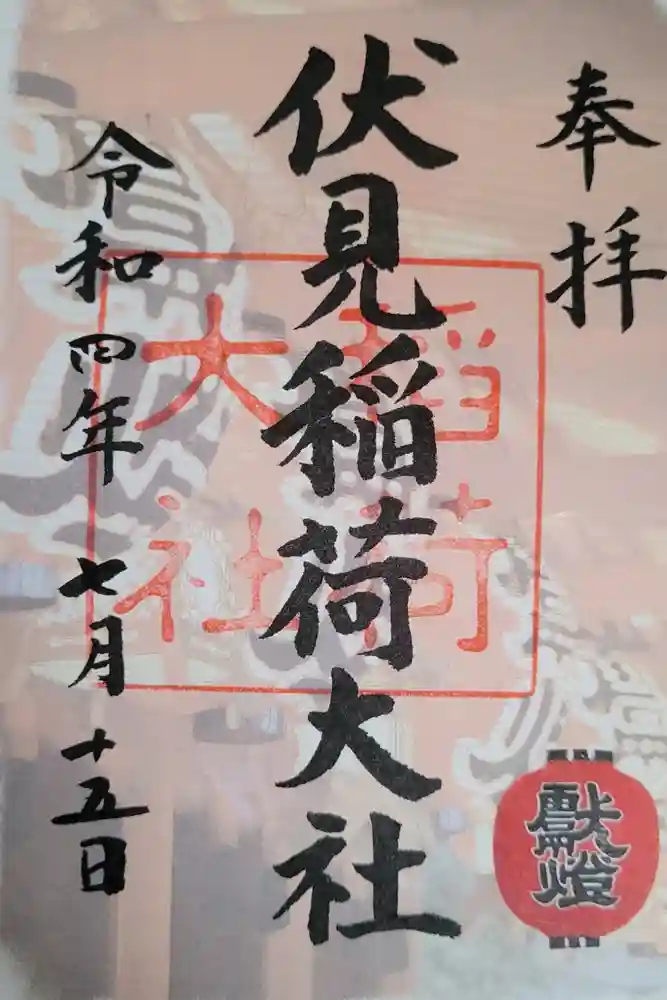 奉拝
伏見稲荷大社
稲荷
大社
令和四年七月十五日
獻燈